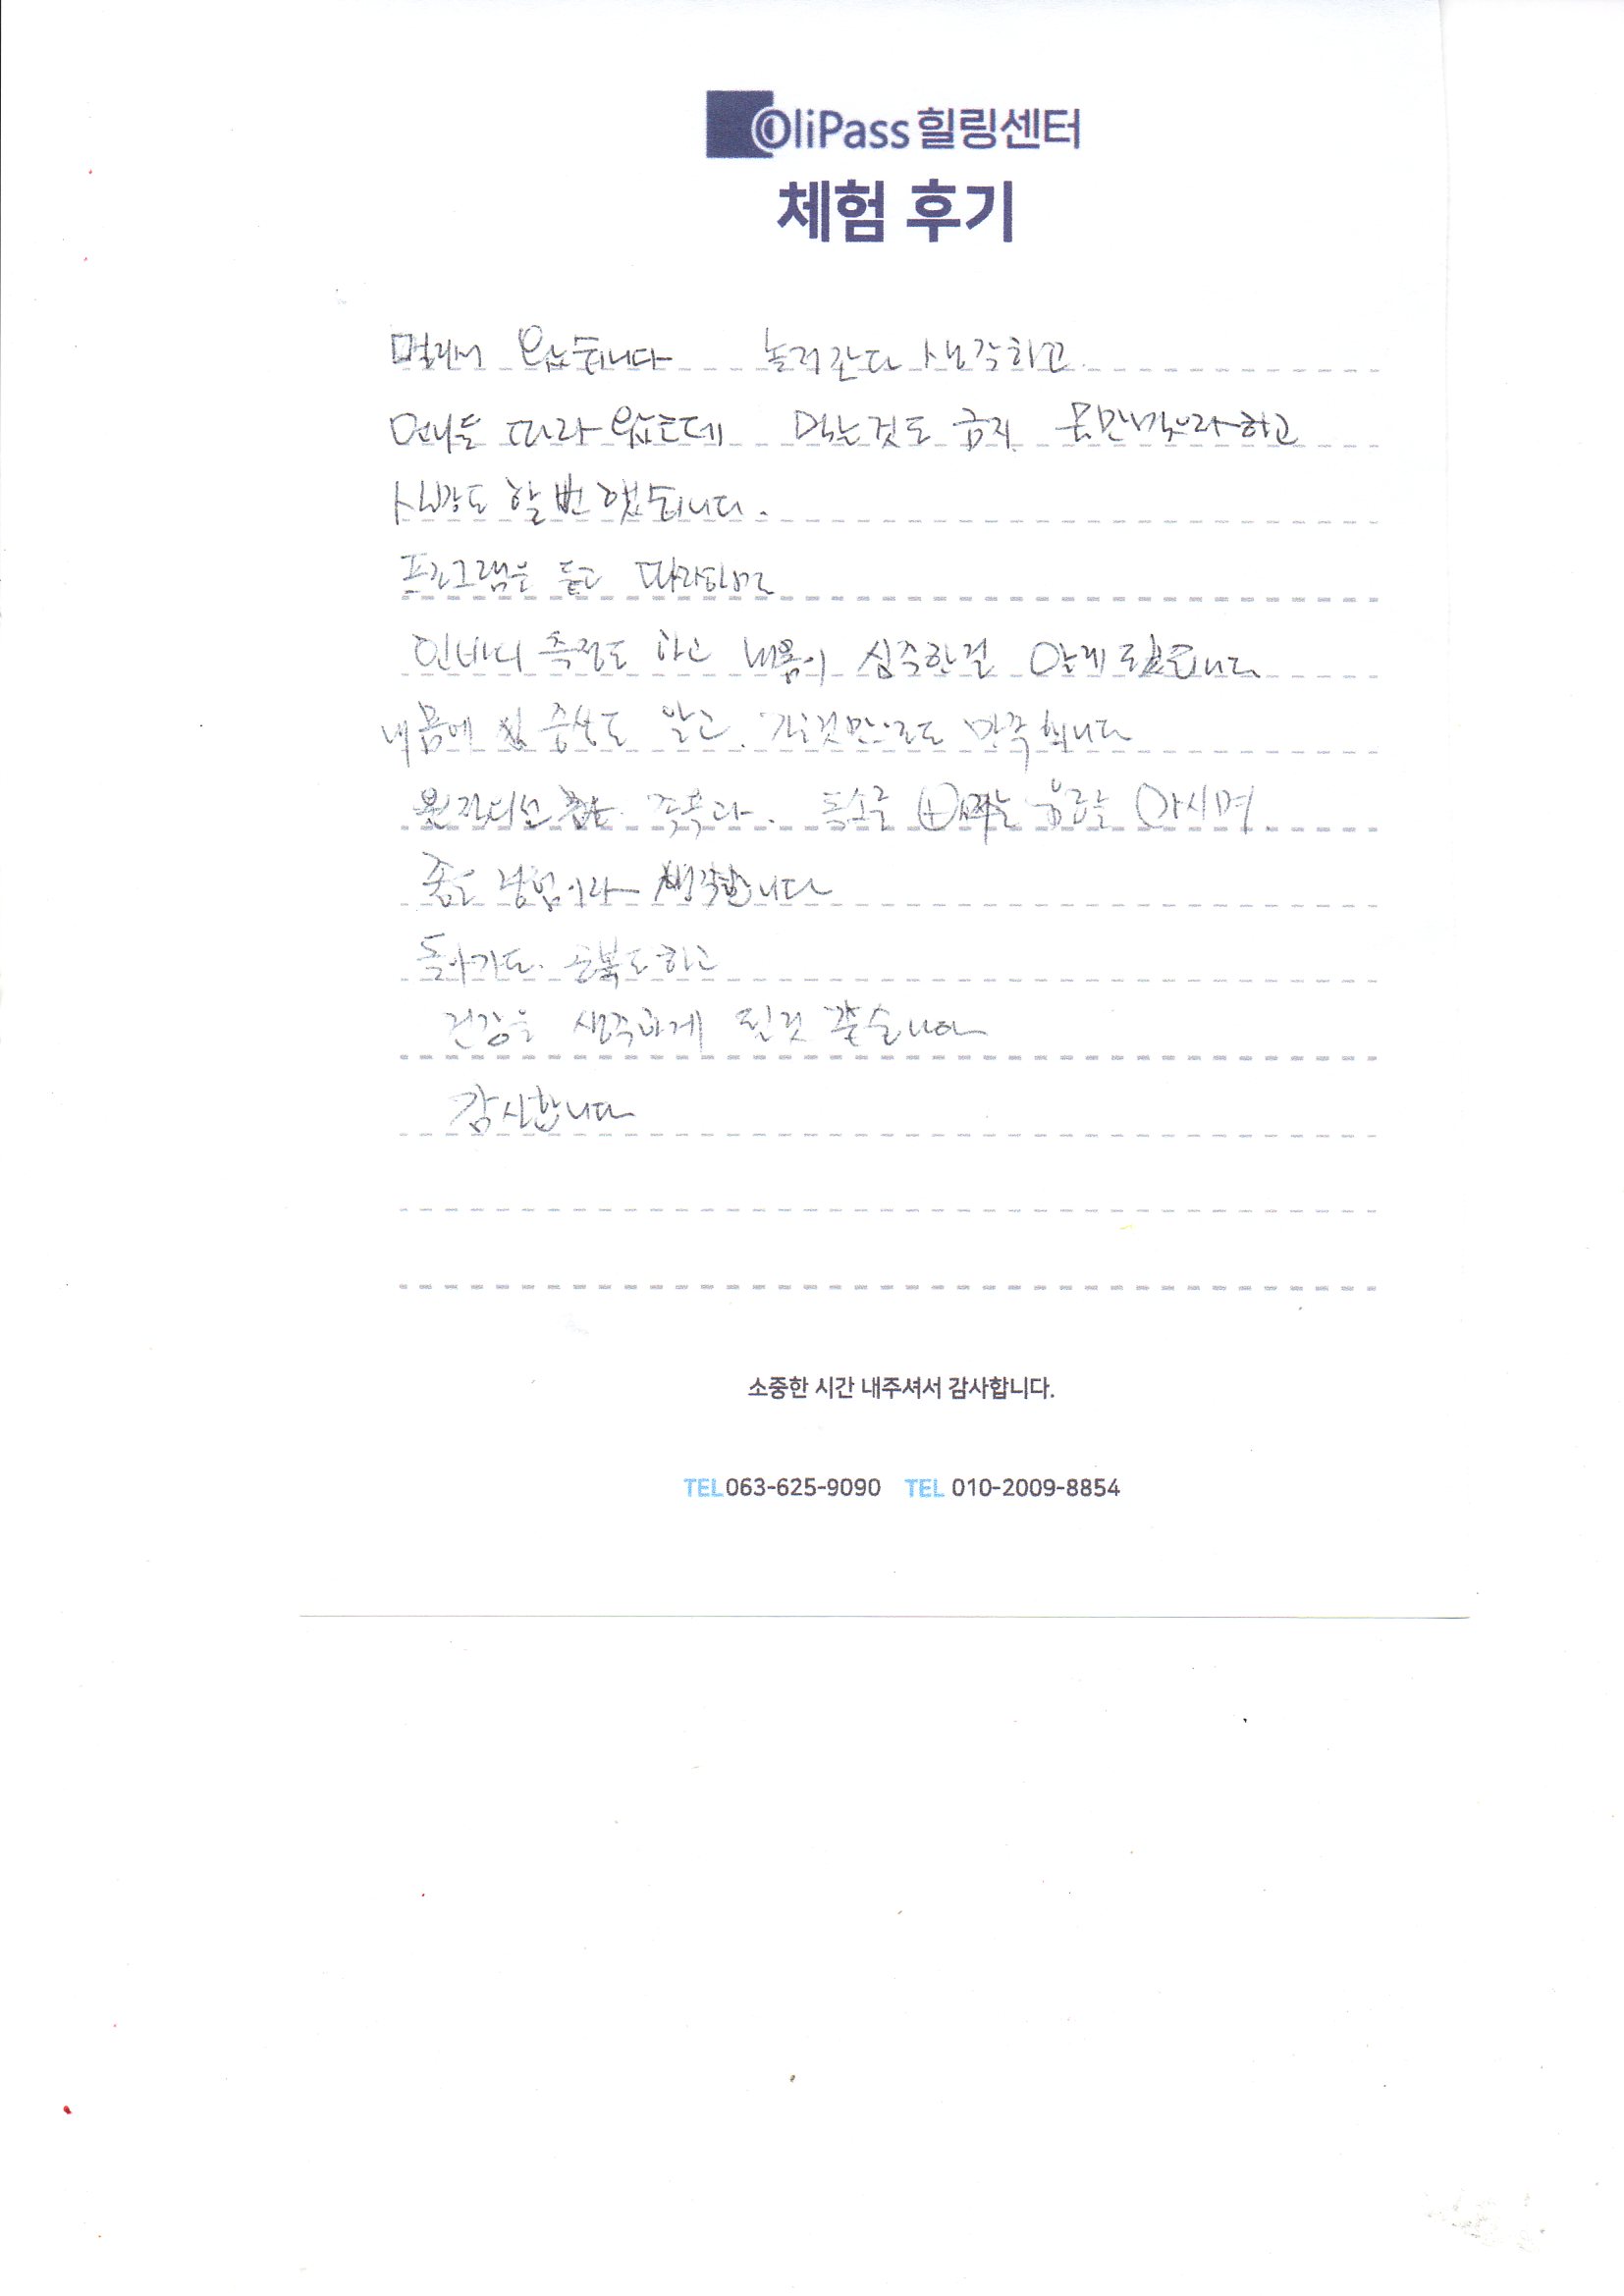 OliPass 힐링센터
체험 후기
멀리서 왔습니다 놀러간다 생각하고
언니들 따라 왔는데 먹는것도 금지 물만 먹으라하고
실망도 할 번 했습니다.
프로그램을 듣고 따라하며
인바디 측정도 하고 내몸이 심각한걸 알게 되었습니다
내몸에 증상도 알고. 만족합니다
족욕과. 독소를 음료를 마시며.
좋은 경험이라 생각합니다
돌아가도. 하고
건강을 생각하게 될것 같습니다
감사합니다
소중한 시간 내주셔서 감사합니다.
TEL 063-625-9090 TEL 010-2009-8854